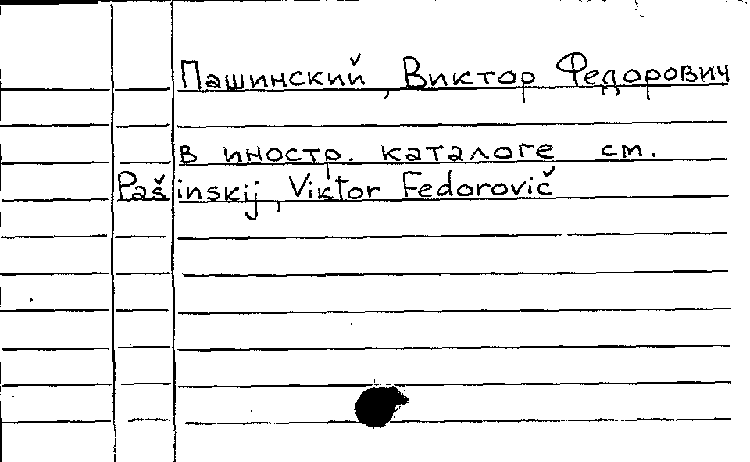 Пашинский, Виктор Федорович
в иностр. каталоге см.
Pašinskij, Viktor Fedorovič